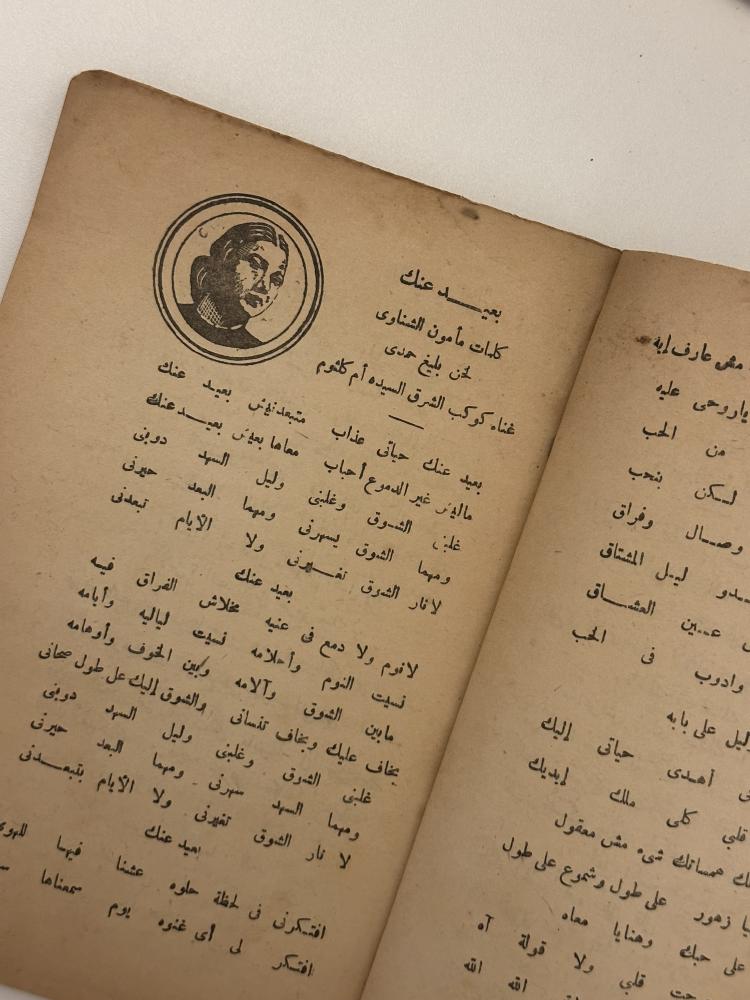 بعيـــد عنك
كلمات مأمون الشناوى
لحن بليغ حمدى
غناء كوكب الشرق السيده أم كلثوم
بعيد عنك حياتى عذاب متبعدنيش بعيـد عنك
ماليش غير الدموع أحباب معاها بعيش بعيـــد عنك
غلبنى الشـوق وغلبنى وليل السهد دوبنى
ومهما الشوق يسهرنى ومهما البعد حيرنى
لا نار الشوق تغـــيرنى ولا الأيام تبعدنى
بعيد عنك
لا نوم ولا دمع فى عنيه مخلاش الفراق فيه
نسيت النوم وأحلامه نسيت لياليه وأيامه
مابين الشوق وآلامه وبين الخوف وأوهامه
بخاف عليك وبخاف تنسانى والشوق إليك على طول صحانى
غلبنى الشوق وغلبنى وليل السهد دوبنى
ومهما السهد سهرنى ومهما البعد حيرنى
لا نار الشوق تغيرنى ولا الأيام بتبعـــدنى
بعيد عنك
افتـكرنى فى لحظة حلوه عشنا فيها للهوى
افتـكر لى أى غنوه يوم سمعناها
مش عارف إيه
ياروحى عليه
من الحب
لـــكن بنحب
وصـــال وفراق
ليــل المشتاق
عـــين العشـــاق
وادوب فى الحب
ليل على بابه
أهـدى حياتى إليك
قلبى كلى ملك إيديك
همساتك شىء مش معقول
زهور على طول وشموع على طول
على حبك وهنايا معاه
قلبى ولا قولة آه
الله الله